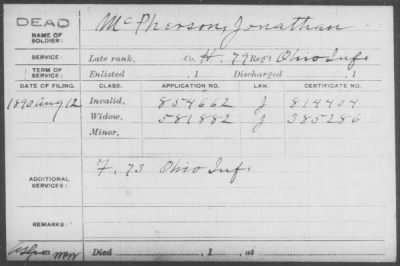 DEAD
NAME OF SOLDIER: McPherson, Jonathan
SERVICE: Late rank, Co. H. 79 Reg't Ohio Inf.
TERM OF SERVICE: Enlisted , 1 Discharged , 1
DATE OF FILING. CLASS. APPLICATION NO. LAW. CERTIFICATE NO.
1890 Aug 12 Invalid, 854662 J 814404
Widow, 581882 J 385286
Minor,
ADDITIONAL SERVICES: F. 73 Ohio Inf.
REMARKS:
Died , 1 , at